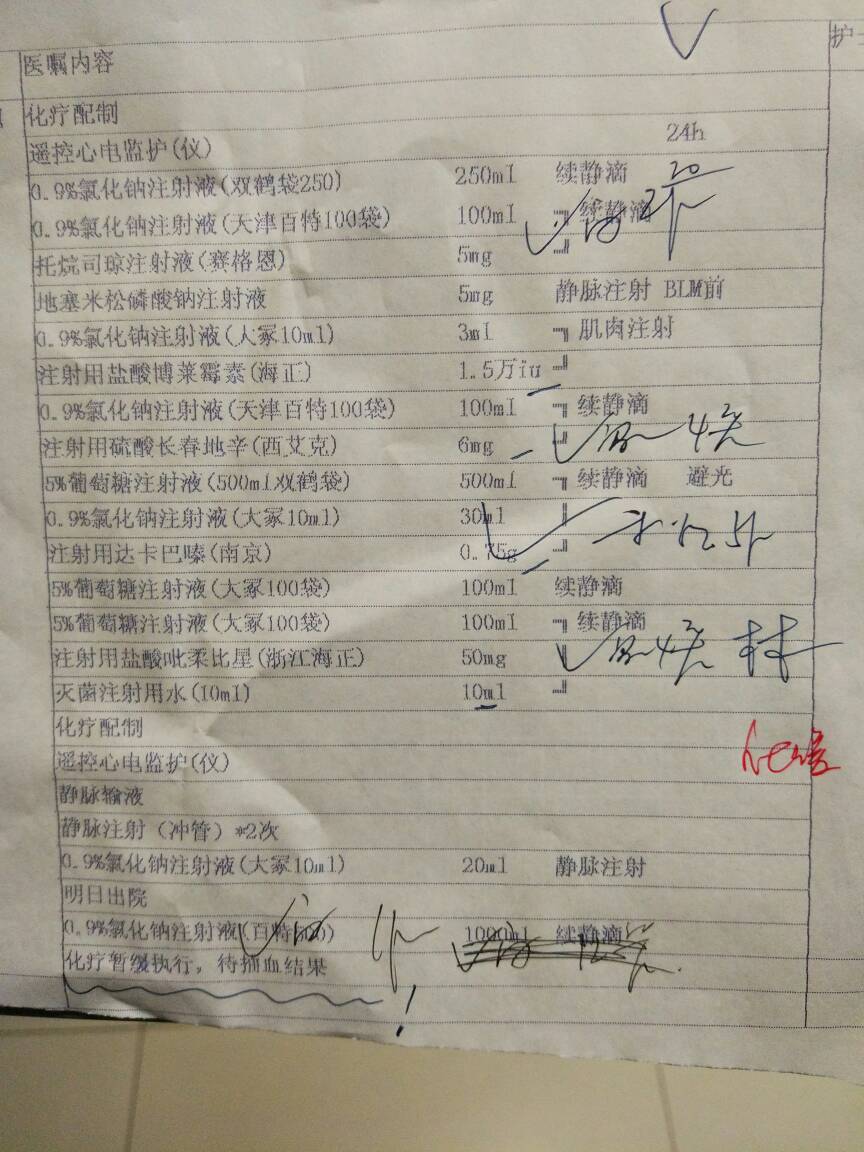 护
医嘱内容
化疗配制
遥控心电监护(仪) 24h
0.9%氯化钠注射液(双鹤袋250) 250ml 续静滴
0.9%氯化钠注射液(天津百特100袋) 100ml ┓ 续静滴
托烷司琼注射液(赛格恩) 5mg ┛
地塞米松磷酸钠注射液 5mg 静脉注射 BLM前
0.9%氯化钠注射液(大冢10ml) 3ml ┓ 肌肉注射
注射用盐酸博莱霉素(海正) 1.5万iu ┛
0.9%氯化钠注射液(天津百特100袋) 100ml ┓ 续静滴
注射用硫酸长春地辛(西艾克) 6mg ┛
5%葡萄糖注射液(500ml双鹤袋) 500ml ┓ 续静滴 避光
0.9%氯化钠注射液(大冢10ml) 30ml
注射用达卡巴嗪(南京) 0.75g ┛
5%葡萄糖注射液(大冢100袋) 100ml 续静滴
5%葡萄糖注射液(大冢100袋) 100ml ┓ 续静滴
注射用盐酸吡柔比星(浙江海正) 50mg
灭菌注射用水(10ml) 10ml ┛
化疗配制
遥控心电监护(仪)
静脉输液
静脉注射（冲管）*2次
0.9%氯化钠注射液(大冢10ml) 20ml 静脉注射
明日出院
0.9%氯化钠注射液(百特500) 1000ml 续静滴
化疗暂缓执行，待抽血结果